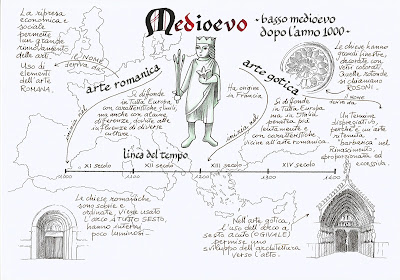 Medioevo
- basso medioevo
dopo l'anno 1000 -
La ripresa
economica e
sociale
permette
un grande
rinnovamento
delle arti.
IL NOME
deriva da
Uso di
elementi
dell'arte
ROMANA.
arte romanica
Si diffonde
in tutta Europa
con caratteristiche simili,
ma anche con alcune
differenze, dovute alle
influenze di diverse
culture.
arte gotica
Ha origine
in Francia
Si diffonde
in tutta Europa
ma in Italia
penetra più
lentamente e
con caratteristiche
vicine all'arte romanica.
Le chiese hanno
grandi finestre,
decorate con
vetri colorati.
Quelle rotonde
si chiamano
ROSONI.
IL NOME
deriva da
Un termine
dispregiativo,
perché è un'arte
ritenuta
barbarica nel
Rinascimento,
sproporzionata ed
eccessiva.
inizia nel
inizia nel
Linea del tempo
XI secolo
XII secolo
XIII secolo
XIV secolo
Le chiese romaniche
sono sobrie e
ordinate, viene usato
l'arco A TUTTO SESTO,
hanno interni
poco luminosi.
Nell'arte gotica
l'uso dell'arco a
sesto acuto (OGIVALE)
permise uno
sviluppo dell'architettura
verso l'alto.